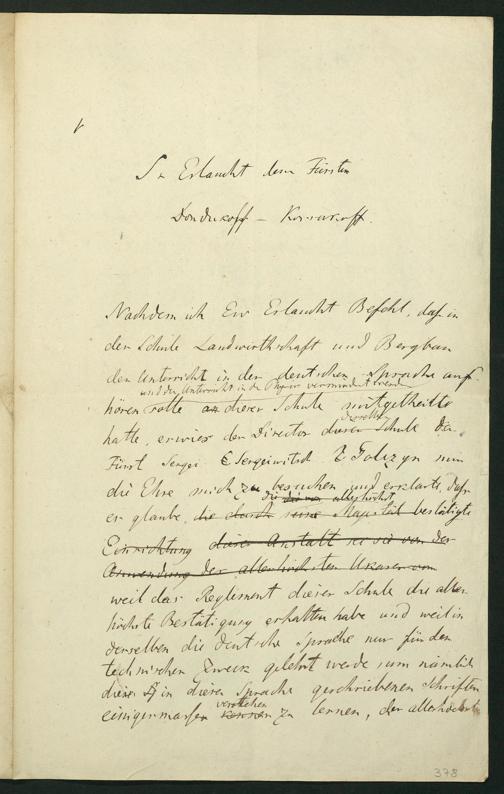 Sr Erlaucht dem Fürsten
Dondukoff - Korsakoff.
Nachdem ich Ew Erlaucht Befehl, daß in
der Schule Landwirthschaft und Bergbau
den Unterricht in der deutschen Sprache auf
und der Unterricht in der Physik vermindert werde
hören sollte an dieser Schule mitgetheilt
derselben
hatte, erwies der Director dieser Schule der
Fürst Sergei Sergeiwitsch Golizyn mir
die Ehre mich zu besuchen und erklärte, daß
die allerhöchst
er glaube, die durch seine Majestät bestätigte
Einrichtung dieser Anstalt sei sie von der
Anwendung der allerhöchsten Ukasen von
weil das Reglement dieser Schule die aller
höchste Bestätigung erhalten habe und weil in
derselben die deutsche Sprache nur für den
technischen Zweck gelehrt werde um nämlich
die in dieser Sprache geschriebenen Schriften
verstehen
einigermaßen kennen zu lernen, der allerhöchste
378